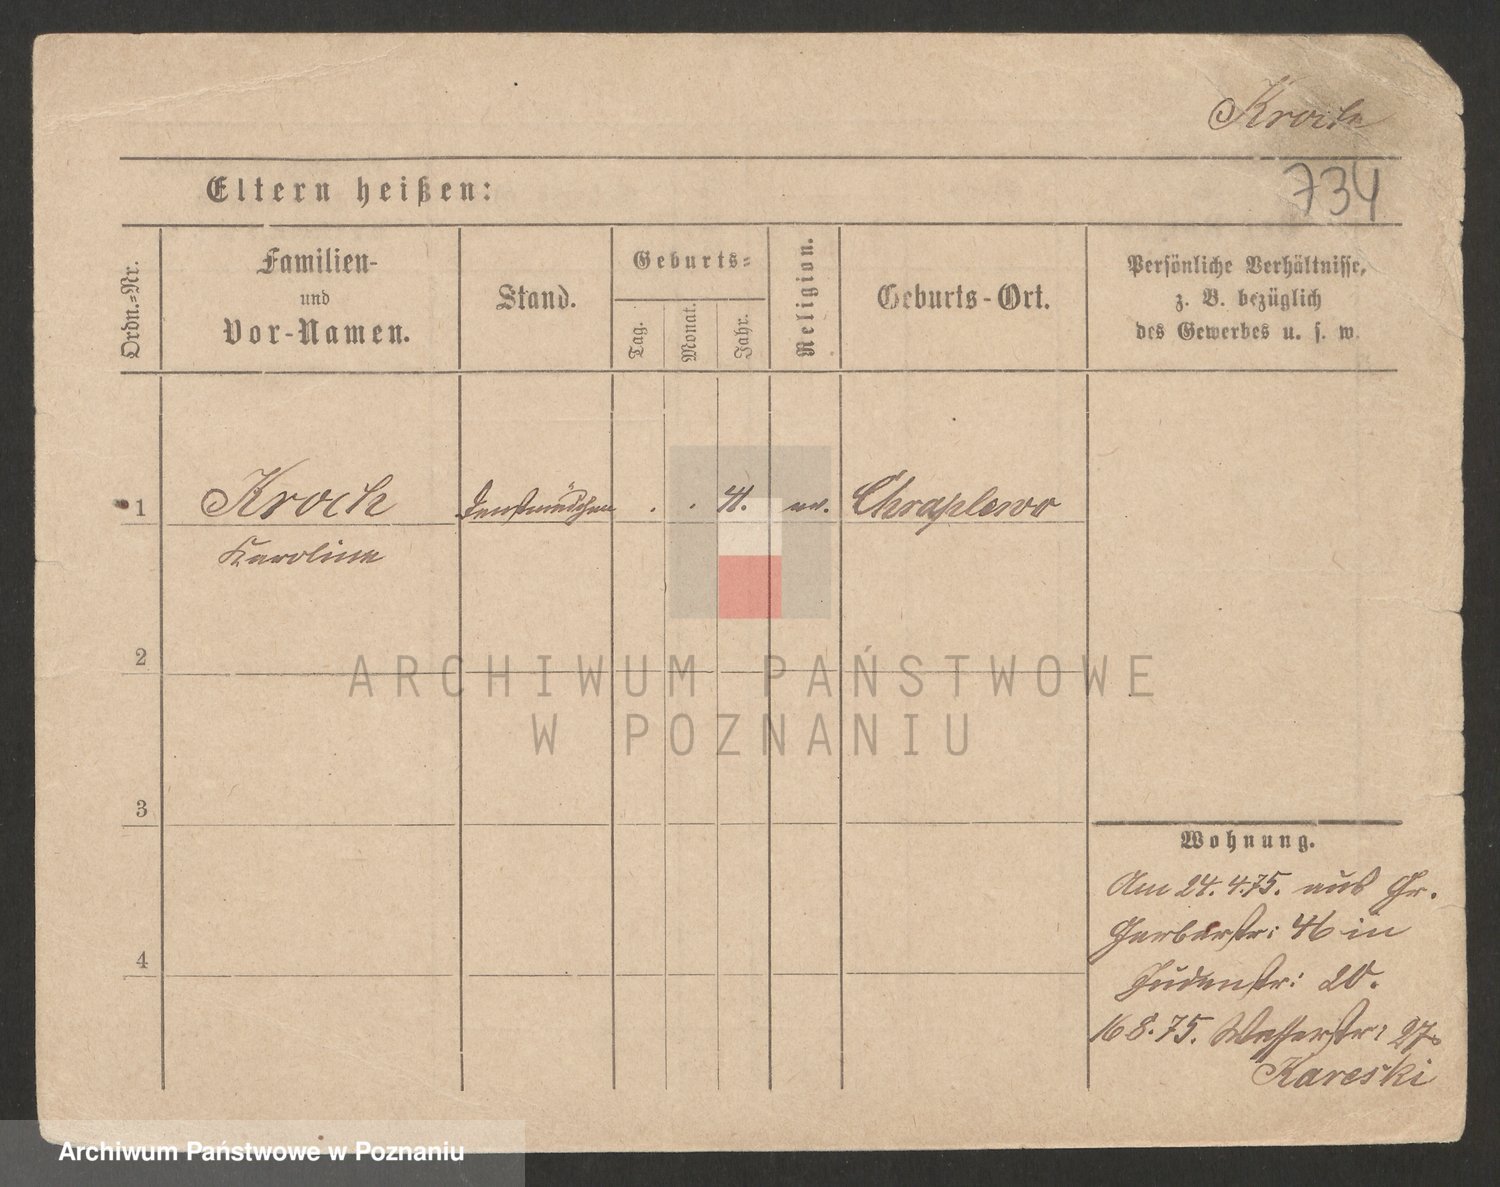 Kroch
734
Eltern heißen:
Ordn.-Nr.
Familien-
und
Vor-Namen.
Stand.
Geburts-
Tag.
Monat.
Jahr.
Religion.
Geburts-Ort.
Persönliche Verhältnisse,
z. B. bezüglich
des Gewerbes u. s. w.
1 Kroch Dienstmädchen . . 41. ev. Chraplewo
Karoline
2
ARCHIWUM PAŃSTWOWE
W POZNANIU
3
Wohnung.
Am 24.4.75. aus Gr.
Gerberstr: 46 in
4
Judenstr: 20.
16 8.75. Wasserstr: 27.
Kareski
Archiwum Państwowe w Poznaniu